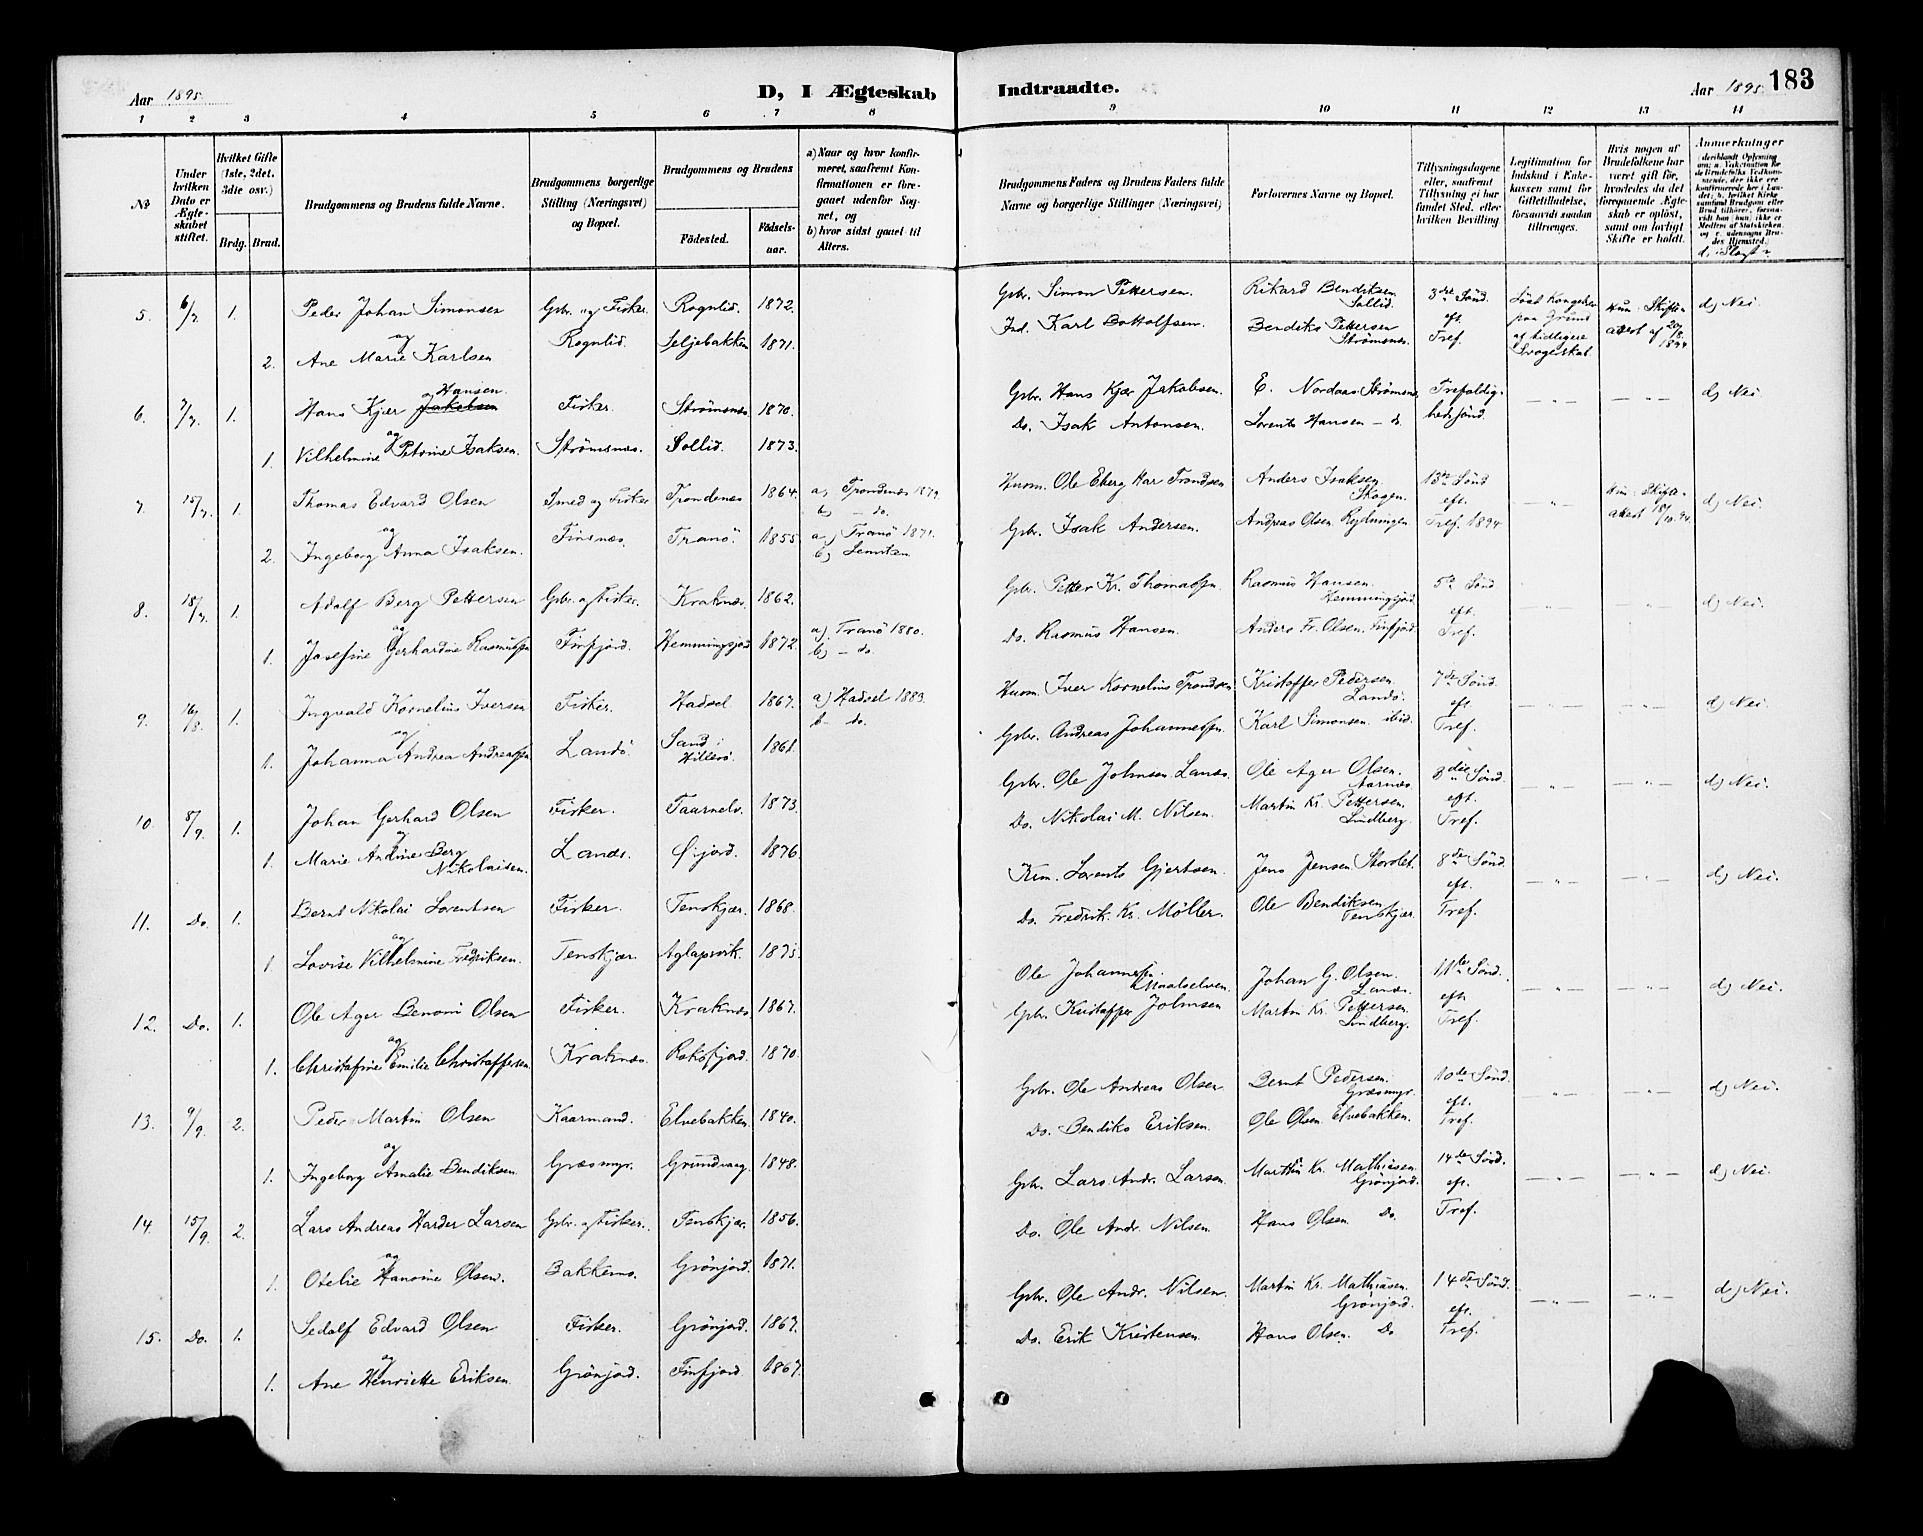 Aar 1895.
D, I Ægteskab
Indtraadte.
Aar 1895.
183
1 2 3 4 5 6 7 8
9 10 11 12 13 14
№
Under hvilken Dato er Ægteskabet stiftet.
Hvilket Gifte (1ste, 2det, 3die osv.)
Brdg. Brud.
Brudgommens og Brudens fulde Navne.
Brudgommens borgerlige Stilling (Næringsvei) og Bopæl.
Brudgommens og Brudens
Fødested.
Fødselsaar.
a) Naar og hvor konfirmeret, saafremt Konfirmationen er foregaaet udenfor Sognet, og
b) hvor sidst gaaet til Alters.
Brudgommens Faders og Brudens Faders fulde Navne og borgerlige Stillinger (Næringsvei)
Forlovernes Navne og Bopæl.
Tillysningsdagene eller, saafremt Tillysning ei har fundet Sted, efter hvilken Bevilling
Legitimation for Indskud i Enkekassen samt for Giftetilladelse, forsaavidt saadan tiltrænges.
Hvis nogen af Brudefolkene har været gift før, hvordeles da det foregaaende Ægteskab er opløst, samt om lovligt Skifte er holdt.
Anmerkninger
d, Slægt?
5. 6/7. 1. Peder Johan Simonsen Gbr. og Fisker. Rognlid. 1872. Gbr. Simon Pettersen. Rikard Bendiksen Sollid. 3die Sønd. eft. Tref. Løst Kongebr. paa Grund af tidligere Svogerskab. Hun: Skifteattest af 20/8. 1894 d, Nei.
og
2. Ane Marie Karlsen Rognlid. Seljebakken 1871. Ind. Karl Bottolfsen. Bendiks Pettersen Strömsnes.
6. 7/7. 1. Hans Kjær Jakobsen Hansen Fisker. Strömsnes 1870. Gbr. Hans Kjær Jakobsen. E. Nordaas Strömsnes Trefoldighedssønd. — „ — — „ — d, Nei.
og
1. Vilhelmine Petrine Isaksen. Strömsnes. Sollid. 1873. Do. Isak Antonsen. Lorents Hansen — do.
7. 15/7. 1. Thomas Edvard Olsen Smed og Fisker Trondenes 1864. a, Trondenes 1879. b, — do. Huom. Ole Eberg Har Trondsen Anders Isaksen Skogen. 13de Sønd eft. Tref. 1894 — „ — Hun: Skifteattest 18/10. 94. d, Nei.
og
2. Ingeborg Anna Isaksen. Finsnes. Tranö. 1855 a, Tranö 1871. b, Gbr. Isak Andersen. Andreas Olsen Rydningen.
8. 18/7. 1. Adolf Berg Pettersen Gbr. og Fisker. Kraknes. 1862. Gbr. Petter Kr. Thomassen Rasmus Hansen. Hemmingsjord. 5te Sønd eft. Tref. — „ — — „ — d, Nei.
og
1. Josefine Gerhardine Rasmussen Finfjord. Hemmingsjord 1872. a, Tranö 1880. b, — do. Do. Rasmus Hansen. Anders Fr. Olsen. Finfjord
9. 16/8. 1. Ingvald Kornelius Iversen Fisker. Hadsel 1867. a, Hadsel 1883. b — do. Huom. Iver Kornelius Trondsen Kristoffer Pedersen Landö. 7de Sønd. eft. Tref. — „ — — „ — d, Nei.
og
1. Johanna Andrea Andreassen Landö. Sand i Hillesö. 1861. Gbr. Andreas Johannessen. Karl Simonsen ibid.
10. 8/9. 1. Johan Gerhard Olsen Fisker. Taarnelv. 1873. Gbr. Ole Johnsen Lanes Ole Ager Olsen. Aarnes. 3die Sønd. eft. Tref. — „ — — „ — d, Nei.
og
1. Marie Andine Berg Nikolaisen. Lanes. Øijord. 1876. Do. Nikolai M. Nilsen. Martin Kr. Pettersen. Lindberg.
11. Do. 1. Bernt Nikolai Lorentsen Fisker. Tenskjær. 1868. Krm. Lorents Gjertsen. Jens Jensen Storslet. 8de Sønd. eft. Tref. — „ — — „ — d, Nei.
og
1. Lovise Vilhelmine Fredriksen. Tenskjær. Aglapsvik. 1875. Do. Fredrik. Kr. Möller. Ole Bendiksen Tenskjær.
12. Do. 1. Ole Ager Benoni Olsen Fisker. Kraknes 1867. Ole Johannessen. Maalselven. Johan G. Olsen. Lanes. 11te Sønd. eft. Tref. — „ — — „ — d, Nei.
og
1. Christofine Emilie Christoffersen Kraknes. Roksfjord. 1870. Gbr. Kristoffer Johnsen Martin Kr. Pettersen. Lindberg.
13. 9/9. 2. Peder Martin Olsen Kaarmand. Elvebakken. 1840. Gbr. Ole Andreas Olsen Bernt Pedersen. Græsmyr. 10de Sønd. eft. Tref. — „ — — „ — d, Nei.
og
1. Ingeborg Amalie Bendiksen. Græsmyr. Grundvaag 1848. Do. Bendiks Eriksen. Ole Olsen Elvebakken.
14. 15/9. 2. Lars Andreas Harder Larsen Gbr. og Fisker. Tenskjær. 1856. Gbr. Lars Andr. Larsen Martin Kr. Mathiasen. Grönjord. 14de Sønd. eft. Tref. — „ — — „ — d, Nei.
og
1. Otelie Hansine Olsen. Bakkenes. Grönjord. 1871. Do. Ole Andr. Nilsen Hans Olsen. Do.
15. Do. 1. Sedolf Edvard Olsen Fisker. Grönjord. 1867. Gbr. Ole Andr. Nilsen. Martin Kr. Mathiasen. Grönjord. 14de Sønd. eft. Tref. — „ — — „ — d, Nei.
og
1. Ane Henriette Eriksen. Grönjord. Finfjord 1867. Do. Erik Kristensen. Hans Olsen. Do